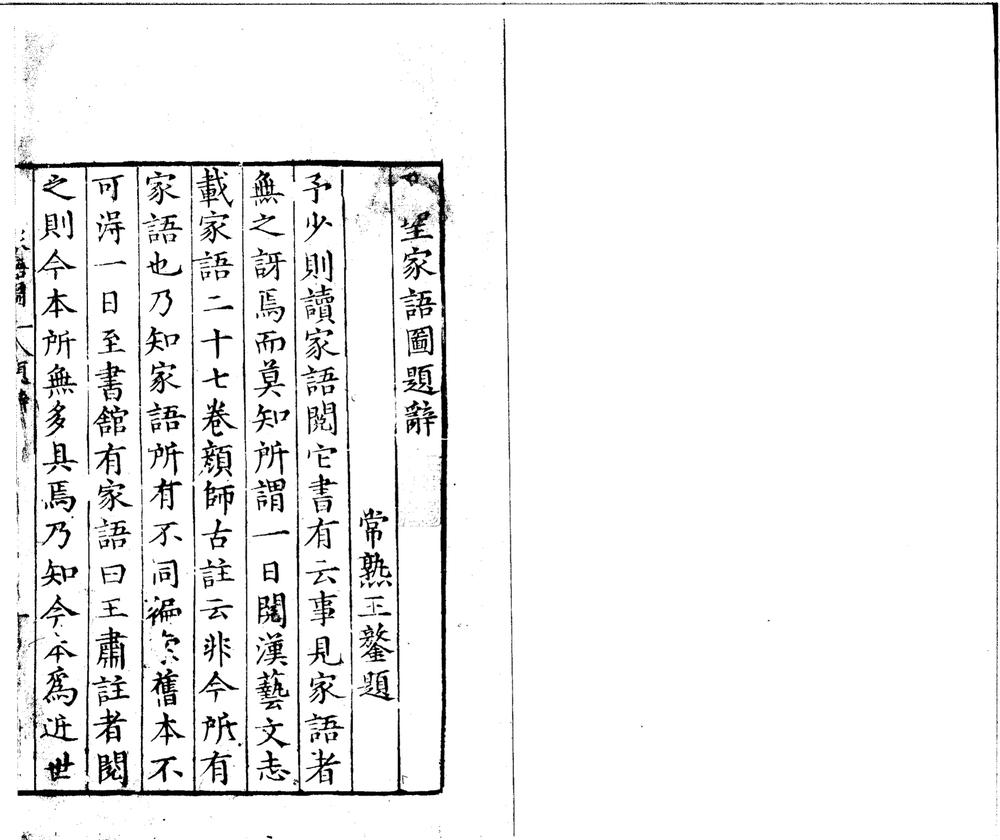 聖家語圖題辭
常熟王鏊題
予少則讀家語閱它書有云事見家語者
無之訝焉而莫知所謂一日閱漢藝文志
載家語二十七卷顏師古註云非今所有
家語也乃知家語所有不同徧舊本不
可得一日至書館有家語曰王肅註者閱
之則今本所無多具焉乃知今本爲近世